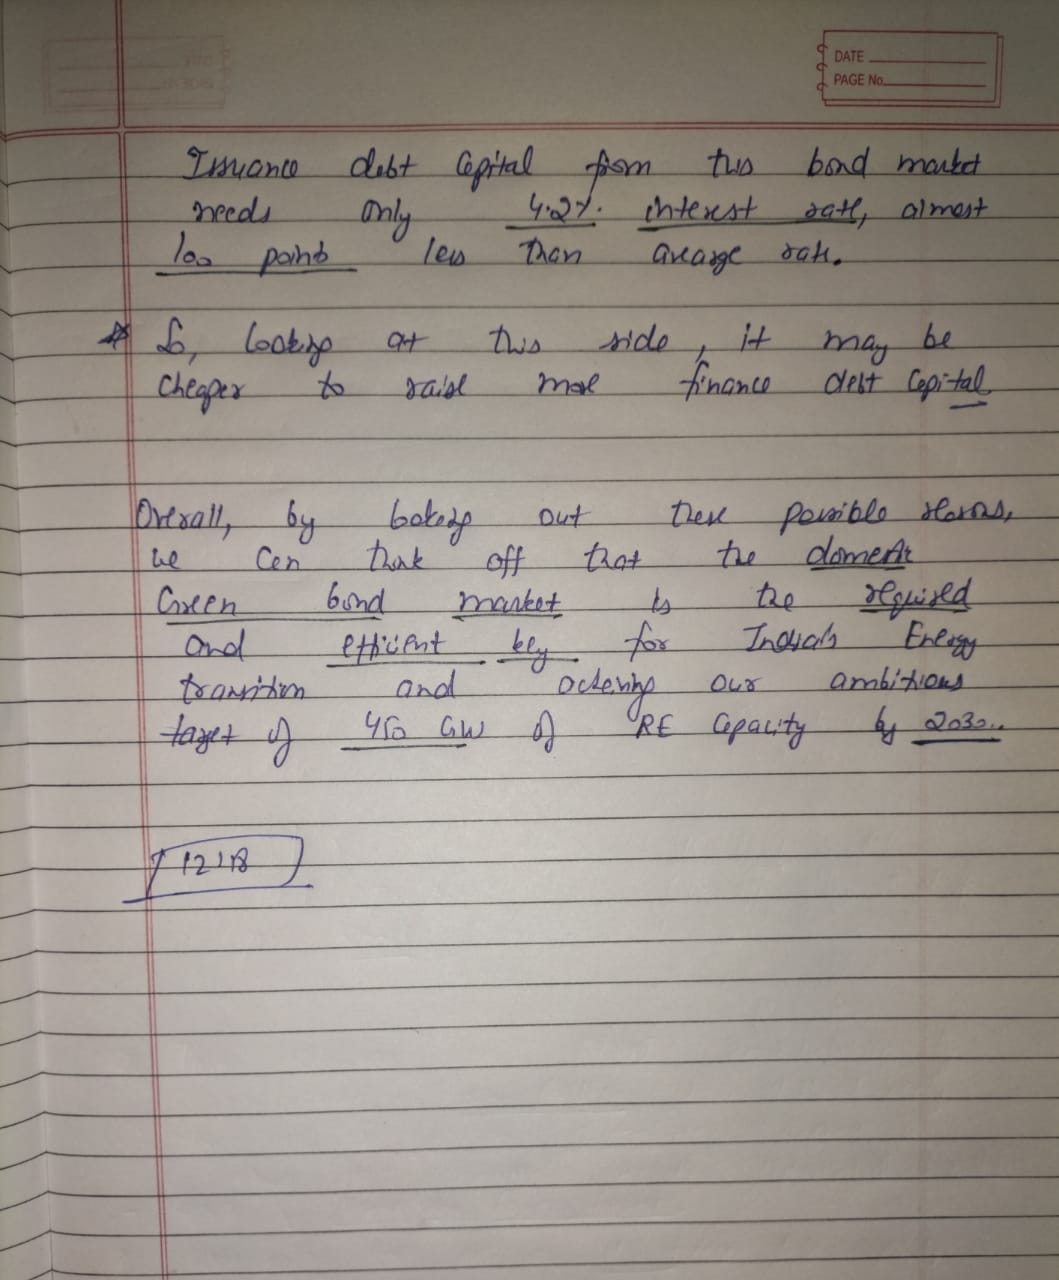 DATE
PAGE No.
Issuance debt Capital from this bond market
needs only 4.2%. interest rate, almost
100 points less than average rate.
* So, looking at this side, it may be
cheaper to raise more finance debt Capital
Overall, by looking out these possible reasons,
we can think off that the domestic
Green bond market is the required
and efficient key for India's Energy
transition and achieving our ambitious
target of 450 GW of RE Capacity by 2030..